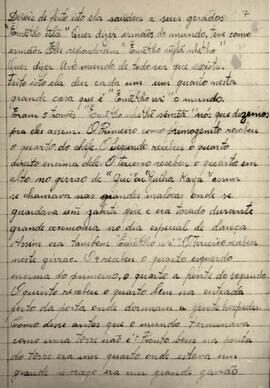 7
Depois de feito isto ela saudou a seus gerados
"Quer dizer irmãos do mundo, teve como
irmãos. Eles responderam
Quer dizer Avó mundo de todo ser que existe.
Feito isto ela deu cada um um quarto nesta
grande casa que é o mundo.
Eram 5 trovões nós que dizemos
pra eles assim. O Primeiro como primogenito recebeu
o quarto do chefe. O segundo recebeu o quarto
direito encima dele. O terceiro recebeu o quarto em
alto no girrao de
se chamava nas grandes malocas onde se
guardava um que e era tocado durante
grande ceremonia no dia especial de dança
Assim era tambem O terceiro recebeu
neste girrao. O recebeu o quarto esquerdo
encima do primeiro, o quarto a frente do segundo.
O quinto recebeu o quarto bem na entrada
perto da porta onde dormam a gente hospedes.
Como disse antes que o mundo terminava
como uma torre não é? Então bem na ponta
do torre era um quarto onde estava um
grande morcego era um grande gavião